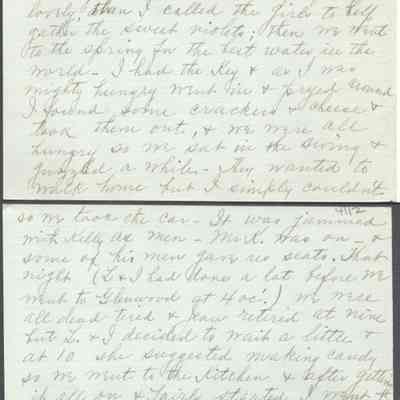 lovely, then I called the girls to help
gather the sweet violets; then we went
to the spring for the best water in the
world – I had the Key & as I was
mighty hungry went in & pryed around
I found some crackers & cheese &
took them out, & we were all
hungry so we sat in the swing &
a while – They wanted to
walk home but I simply couldn't
4/12
so we took the car – It was jammed
with Kelly men – Mr K. was on – &
some of his men gave us seats. That
night (L & I had done a lot before we
went to Glenwood at 4 oc'.) we were
all dead tired & retired at nine
but L. & I decided to wait a little &
at 10 she suggested making candy
so we went to the Kitchen & after getting
it all on & fairly started I went to